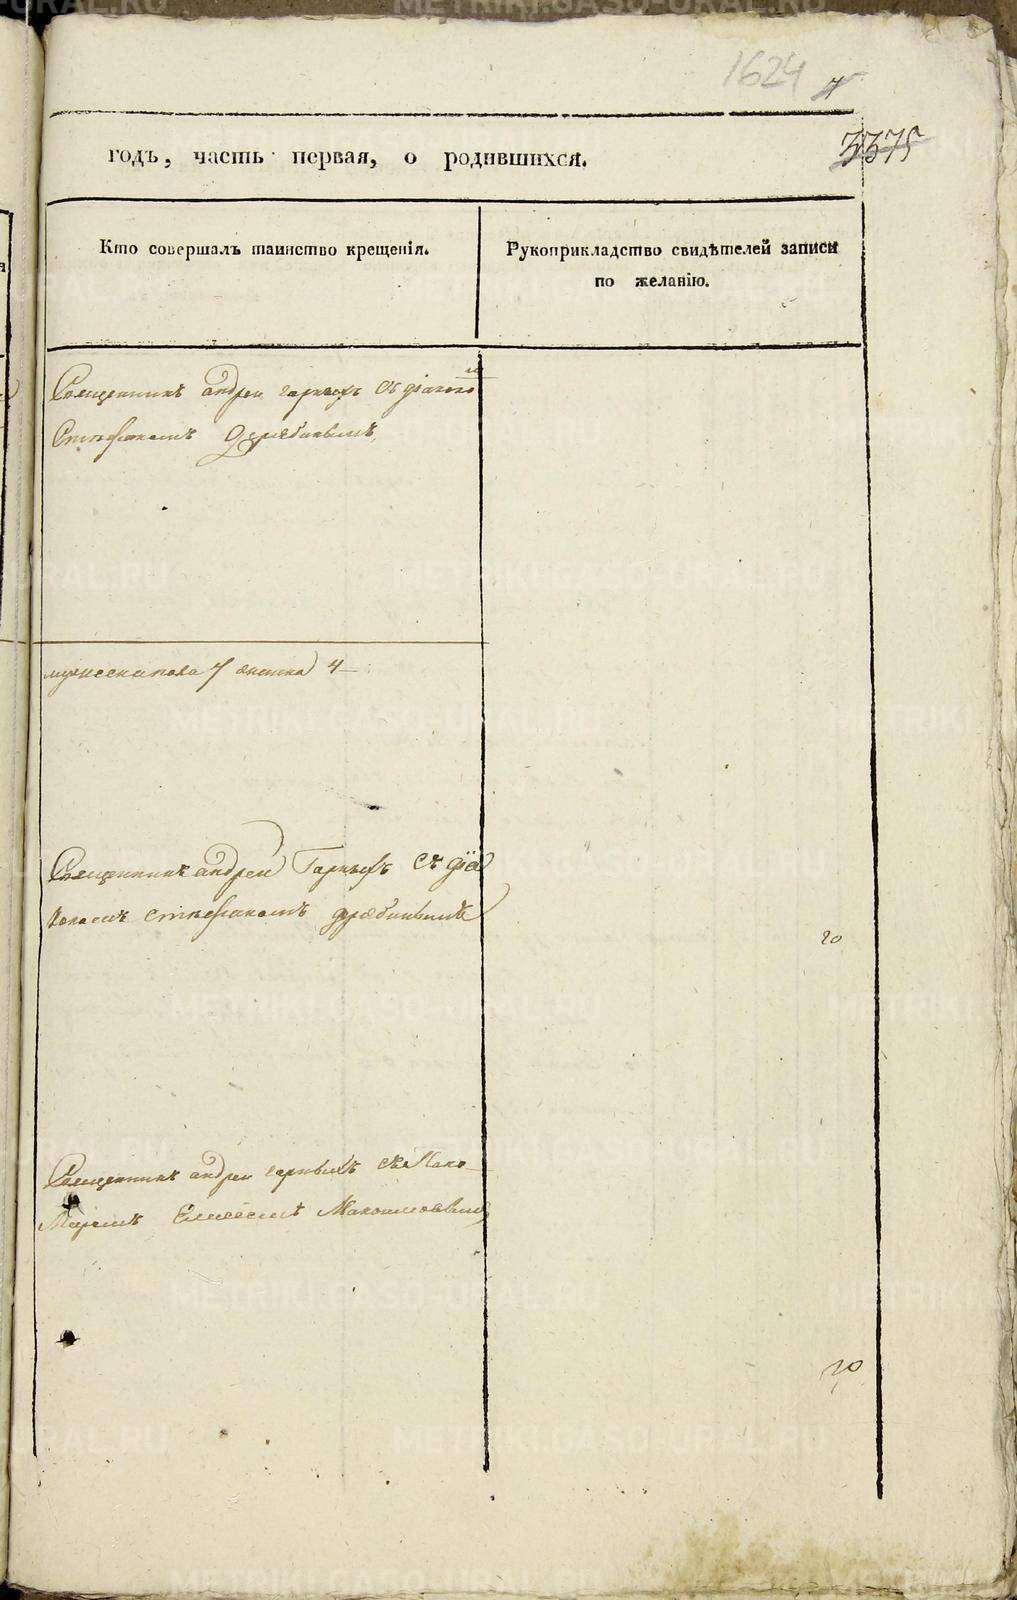 1624
3375
годъ, часть первая, о родившихся.
Кто совершалъ таинство крещенія.
Рукоприкладство свидѣтелей записи
по желанію.
Священникъ андреи съ діаконо
Стефаномъ Дерябинымъ
мужеска пола 7 женска 4
Священникъ андреи съ діа
кономъ стефаномъ дерябинымъ
20
Священникъ андреи съ Поно
Маремъ Елисеемъ
20
METRIKI.GASO-URAL.RU